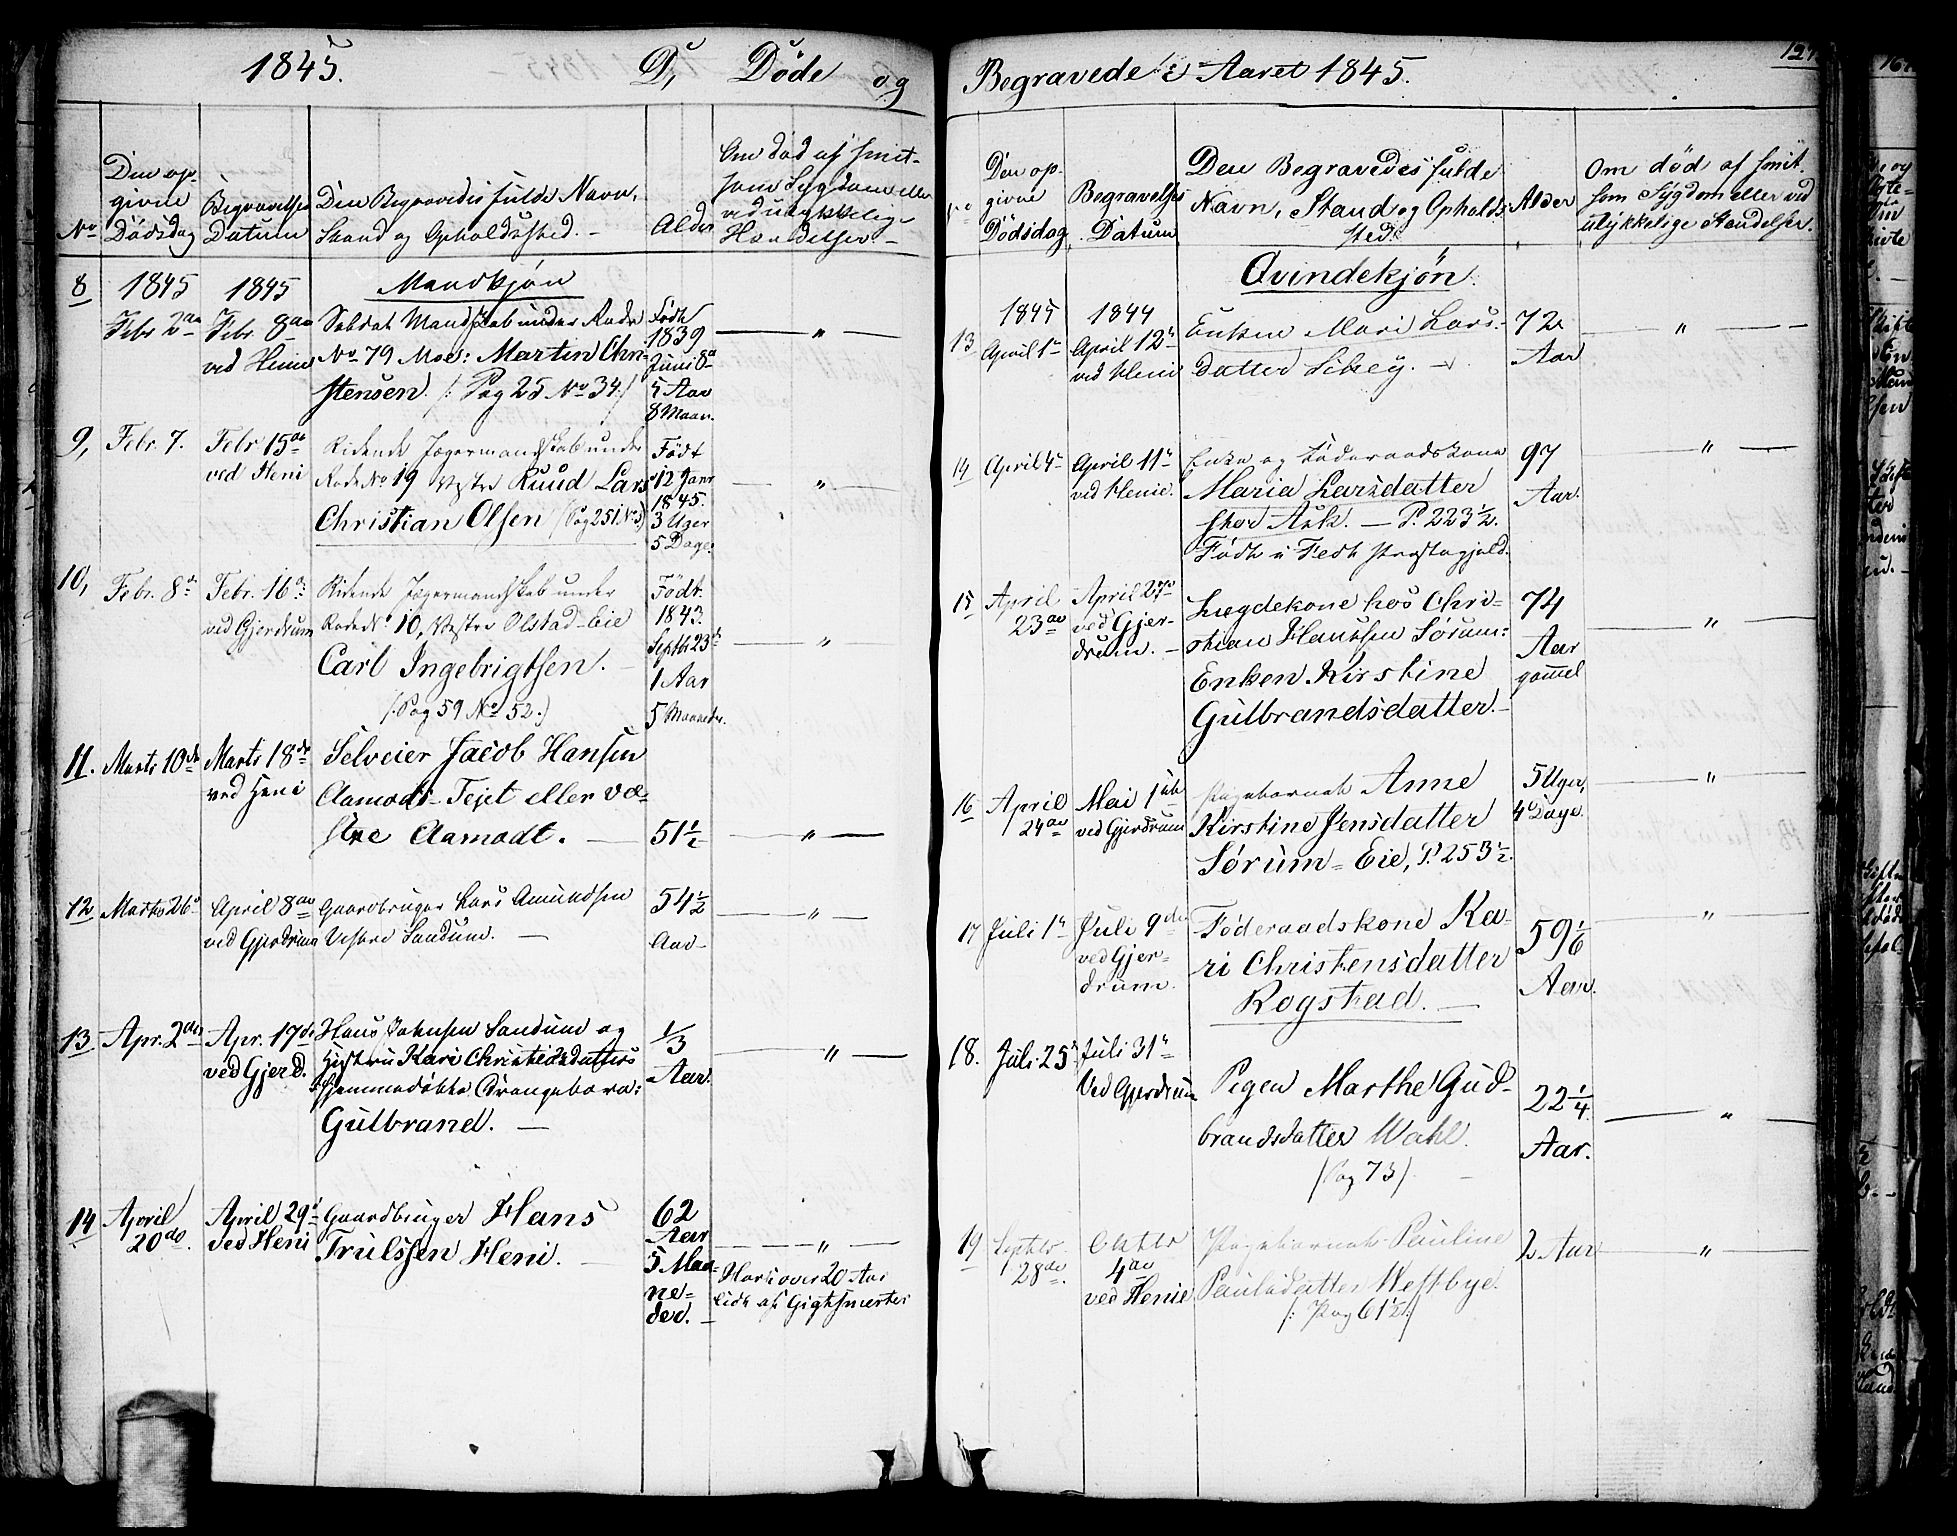 1845. D, Døde og
Den op-
givne
Dødsdag
No
Begravelses
Datum
Den Begravedes fulde Navn,
Stand og Opholdssted. -
Alder
Om død af smit-
som Sygdom eller
ved ulykkelige
Hændelser -
8
1845
Febr 2den
1845
Febr. 8de
ved Heni
Mandkjøn
Soldat Mandskab under Rode
No 79 Moe: Martin Chri-
stensen. /: Pag 25 No 34 /
Født
1839
Juni 8de
5 Aar
8 Maan.
"
9,
Febr. 7.
Febr 15de
ved Heni
Ridende Jægermandskab under
Rode No 19 Vestre Ruud Lars
Christian Olsen (Pag 251 No 3)
Født
12 Janr
1845.
3 Uger
5 Dage.
"
10,
Febr. 8de
Febr. 16de
ved Gjerdrum
Ridende Jægermandskab under
Rode No 10, Vestre Olstad-eie
Carl Ingebrigtsen.
/: Pag 59 No 52. /
Født
1843.
Septbr 23de
1 Aar
5 Maaneder.
"
11.
Marts 10de
Marts 18de
ved Heni
Selveier Jacob Hansen
Aamodt-Tejet eller Væ-
stre Aamodt.
51½
"
12
Marts 26de
April 8de
ved Gjerdrum
Gaardbruger Lars Amundsen
Vestre Sandum.
54½
Aar
"
13
Apr. 2den
Apr. 17de
ved Gjerd.
Hans Johnsen Sandum og
Hustru Kari Christiedatters
hjemmedøbte Drengebarn:
Gulbrand.
1/3
Aar.
"
14
April
20de.
April 29de
ved Heni
Gaardbruger Hans
Trulssen Heni.
62
Aar
5 Maa-
ne-
der.
"
Har i over 20 Aar
lidt af Gigtsmerter
Begravede i Aaret 1845.
Den op-
givne
Dødsdag
Begravelses
Datum
Den Begravedes fulde
Navn, Stand og Opholds-
sted.
Alder
Om død af smit-
som Sygdom eller ved
ulykkelige Hændelser.
Qvindekjøn.
13
1845
April 1te
1844
April 12te
ved Heni
Enken Mari Lars-
datter Libey.
72
Aar
"
14
April 4de
April 11te
ved Henie.
Enke og Føderaadskone
Maria Larsdatter
Stor Ask. - P. 223½.
Født i Fedt Præstegjeld.
97
Aar.
"
15
April
23de
April 27de
ved Gjer-
drum.
Lægdekone hos Chri-
stian Hanssen Sørum:
Enken Kirstine
Gulbrandsdatter.
74
Aar
gammel
"
16
April
24de
Mai 1ste
ved Gjerdrum
Pigebarnet Anne
Kirstine Jensdatter
Sørum-Eie, P. 253½.
5 Uger,
4 Dage.
"
17
Juli 1te
Juli 9de
ved Gjer-
drum.
Føderaadskone Ka-
ri Christensdatter
Rogstad.
59 1/6
Aar.
"
18.
Juli 25de
Juli 31te
Ved Gjerdrum
Pigen Marthe Gud-
brandsdatter Wahl.
(Pag 73)
22¼
Aar.
"
19
Septbr.
28de.
Oktbr
4de
ved Henie
Pigebarnet Pauline
Paulsdatter Westbye.
/: Pag 61½ /
2 Aar
"